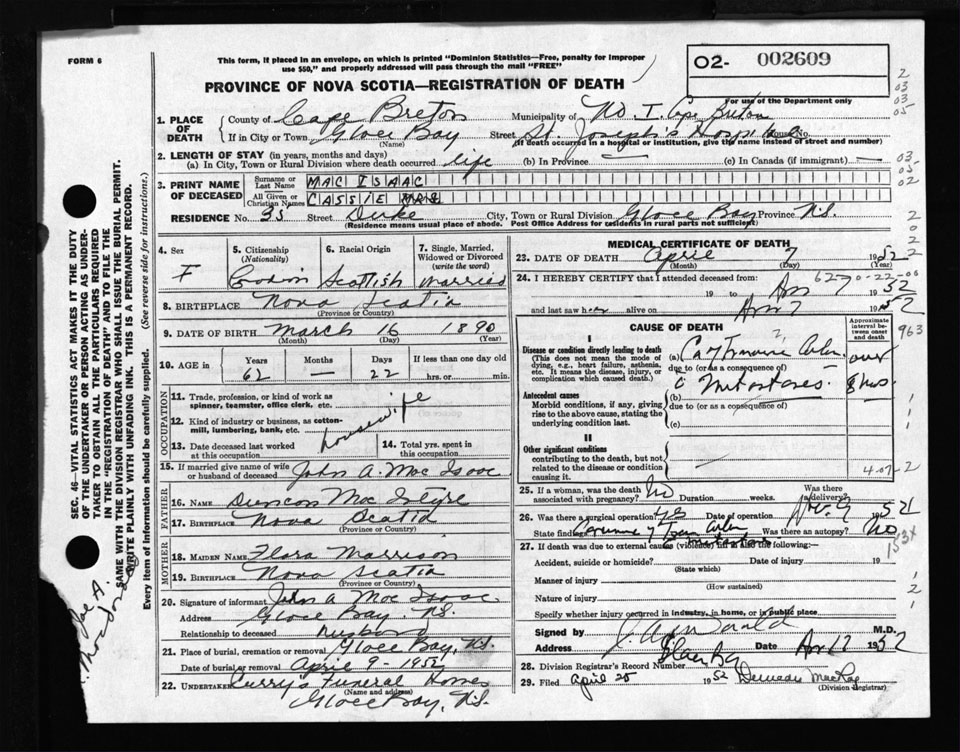 FORM 6
This form, if placed in an envelope, on which is printed "Dominion Statistics—Free, penalty for improper
use $50," and properly addressed will pass through the mail "FREE"
O2- 002609
For use of the Department only
PROVINCE OF NOVA SCOTIA—REGISTRATION OF DEATH
1. PLACE OF DEATH County of Cape Breton Municipality of No. 1. Cape Breton
If in City or Town Glace Bay (Name) Street St. Joseph's Hospital House No.
(If death occurred in a hospital or institution, give the name instead of street and number)
2. LENGTH OF STAY (in years, months and days)
(a) In City, Town or Rural Division where death occurred life (b) In Province — (c) In Canada (if immigrant) —
3. PRINT NAME OF DECEASED Surname or Last Name MAC ISAAC
All Given or Christian Names CASSIE MRS
RESIDENCE No. 35 Street City, Town or Rural Division Glace Bay Province N.S.
(Residence means usual place of abode. Post Office Address for residents in rural parts not sufficient)
4. Sex F
5. Citizenship (Nationality)
6. Racial Origin Scottish
7. Single, Married, Widowed or Divorced (write the word) Married
8. BIRTHPLACE Nova Scotia
(Province or Country)
9. DATE OF BIRTH March 16 1890
(Month) (Day) (Year)
10. AGE in Years 62 Months — Days 22 If less than one day old hrs. or min.
OCCUPATION
11. Trade, profession, or kind of work as spinner, teamster, office clerk, etc.
12. Kind of industry or business, as cotton-mill, lumbering, bank, etc.
housewife
13. Date deceased last worked at this occupation
14. Total yrs. spent in this occupation
15. If married give name of wife or husband of deceased John A. Mac Isaac
FATHER
16. NAME Duncan Mac Intyre
17. BIRTHPLACE Nova Scotia
(Province or Country)
MOTHER
18. MAIDEN NAME Flora Morrison
19. BIRTHPLACE Nova Scotia
(Province or Country)
20. Signature of informant John A Mac Isaac
Address Glace Bay, N.S.
Relationship to deceased husband
21. Place of burial, cremation or removal Glace Bay, N.S.
Date of burial or removal April 9 - 1952
22. UNDERTAKER Curry's Funeral Homes
(Name and address)
Glace Bay, N.S.
MEDICAL CERTIFICATE OF DEATH
23. DATE OF DEATH April 7 1952
(Month) (Day) (Year)
24. I HEREBY CERTIFY that I attended deceased from:
19 to 1952
and last saw her alive on 7 1952
CAUSE OF DEATH
Approximate interval between onset and death
I
Disease or condition directly leading to death
(This does not mean the mode of dying, e.g., heart failure, asthenia, etc. It means the disease, injury, or complication which caused death.)
(a)
due to (or as a consequence of)
Antecedent causes
Morbid conditions, if any, giving rise to the above cause, stating the underlying condition last.
(b) metastases
due to (or as a consequence of)
(c)
over 8 mos.
II
Other significant conditions
contributing to the death, but not related to the disease or condition causing it.
25. If a woman, was the death associated with pregnancy? No Duration weeks. Was there a delivery?
26. Was there a surgical operation? yes Date of operation
State findings Was there an autopsy? No
27. If death was due to external causes (violence) fill in also the following:—
Accident, suicide or homicide? Date of injury 19
(State which)
Manner of injury
(How sustained)
Nature of injury
Specify whether injury occurred in industry, in home, or in public place
Signed by M.D.
Address Glace Bay Date 1952
28. Division Registrar's Record Number
29. Filed April 25 1952
(Division Registrar)
SEC. 46—VITAL STATISTICS ACT MAKES IT THE DUTY
OF THE UNDERTAKER OR PERSON ACTING AS UNDER-
TAKER "TO OBTAIN ALL THE PARTICULARS REQUIRED
IN THE "REGISTRATION OF DEATH" AND TO FILE THE
SAME WITH THE DIVISION REGISTRAR WHO SHALL ISSUE THE BURIAL PERMIT.
WRITE PLAINLY WITH UNFADING INK. THIS IS A PERMANENT RECORD.
Every item of information should be carefully supplied. (See reverse side for instructions.)